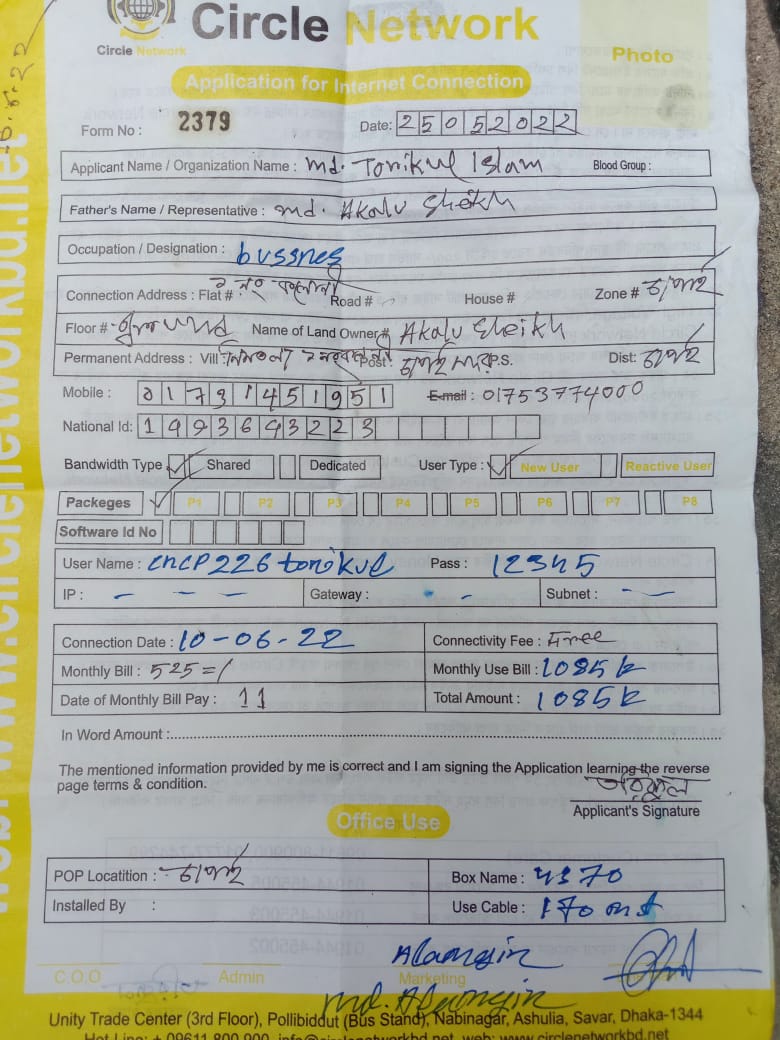 Circle Network
Circle Network
Photo
Application for Internet Connection
Form No : 2379 Date: 25052022
Applicant Name / Organization Name : md. Torikul Islam Blood Group :
Father's Name / Representative : md. Akalu Sheikh
Occupation / Designation : bussnes
Connection Address : Flat # Road # House # Zone #
Floor # ground Name of Land Owner # Akalu Sheikh
Permanent Address : Vill Post : P.S. Dist:
Mobile : 01731451951 E-mail : 01753774000
National Id: 1993693223
Bandwidth Type Shared Dedicated User Type : New User Reactive User
Packeges P1 P2 P3 P4 P5 P6 P7 P8
Software Id No
User Name : cncp226torikul Pass : 12345
IP : - - - Gateway : - Subnet : -
Connection Date : 10-06-22 Connectivity Fee : Free
Monthly Bill : 525=/ Monthly Use Bill : 1085
Date of Monthly Bill Pay : 11 Total Amount : 1085
In Word Amount :
The mentioned information provided by me is correct and I am signing the Application learning the reverse
page terms & condition.
Applicant's Signature
Office Use
POP Locatition : Box Name :
Installed By : Use Cable : 170
Alamgin
C.O.O Admin Marketing
md. Alamgin
Unity Trade Center (3rd Floor), Pollibiddut (Bus Stand), Nabinagar, Ashulia, Savar, Dhaka-1344
Hot Line: + 09611 800 900, info@circlenetworkbd.net, web: www.circlenetworkbd.net